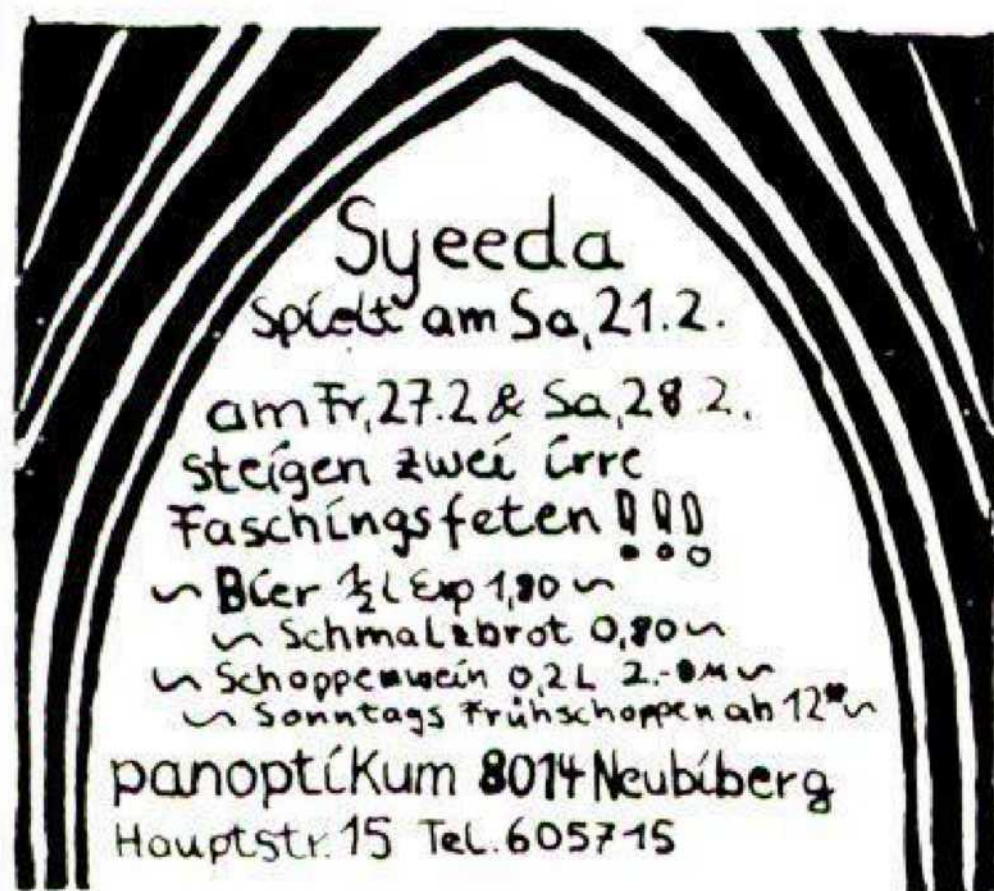 Syeeda
spielt am Sa, 21.2.
am Fr, 27.2 & Sa, 28.2.
steigen zwei irre
Faschingsfeten !!!
~ Bier ½ l Exp 1,80 ~
~ Schmalzbrot 0,80 ~
~ Schoppenwein 0,2 L 2.-DM ~
~ Sonntags Frühschoppen ab 12⁰⁰ ~
panoptikum 8014 Neubiberg
Hauptstr. 15 Tel. 605715